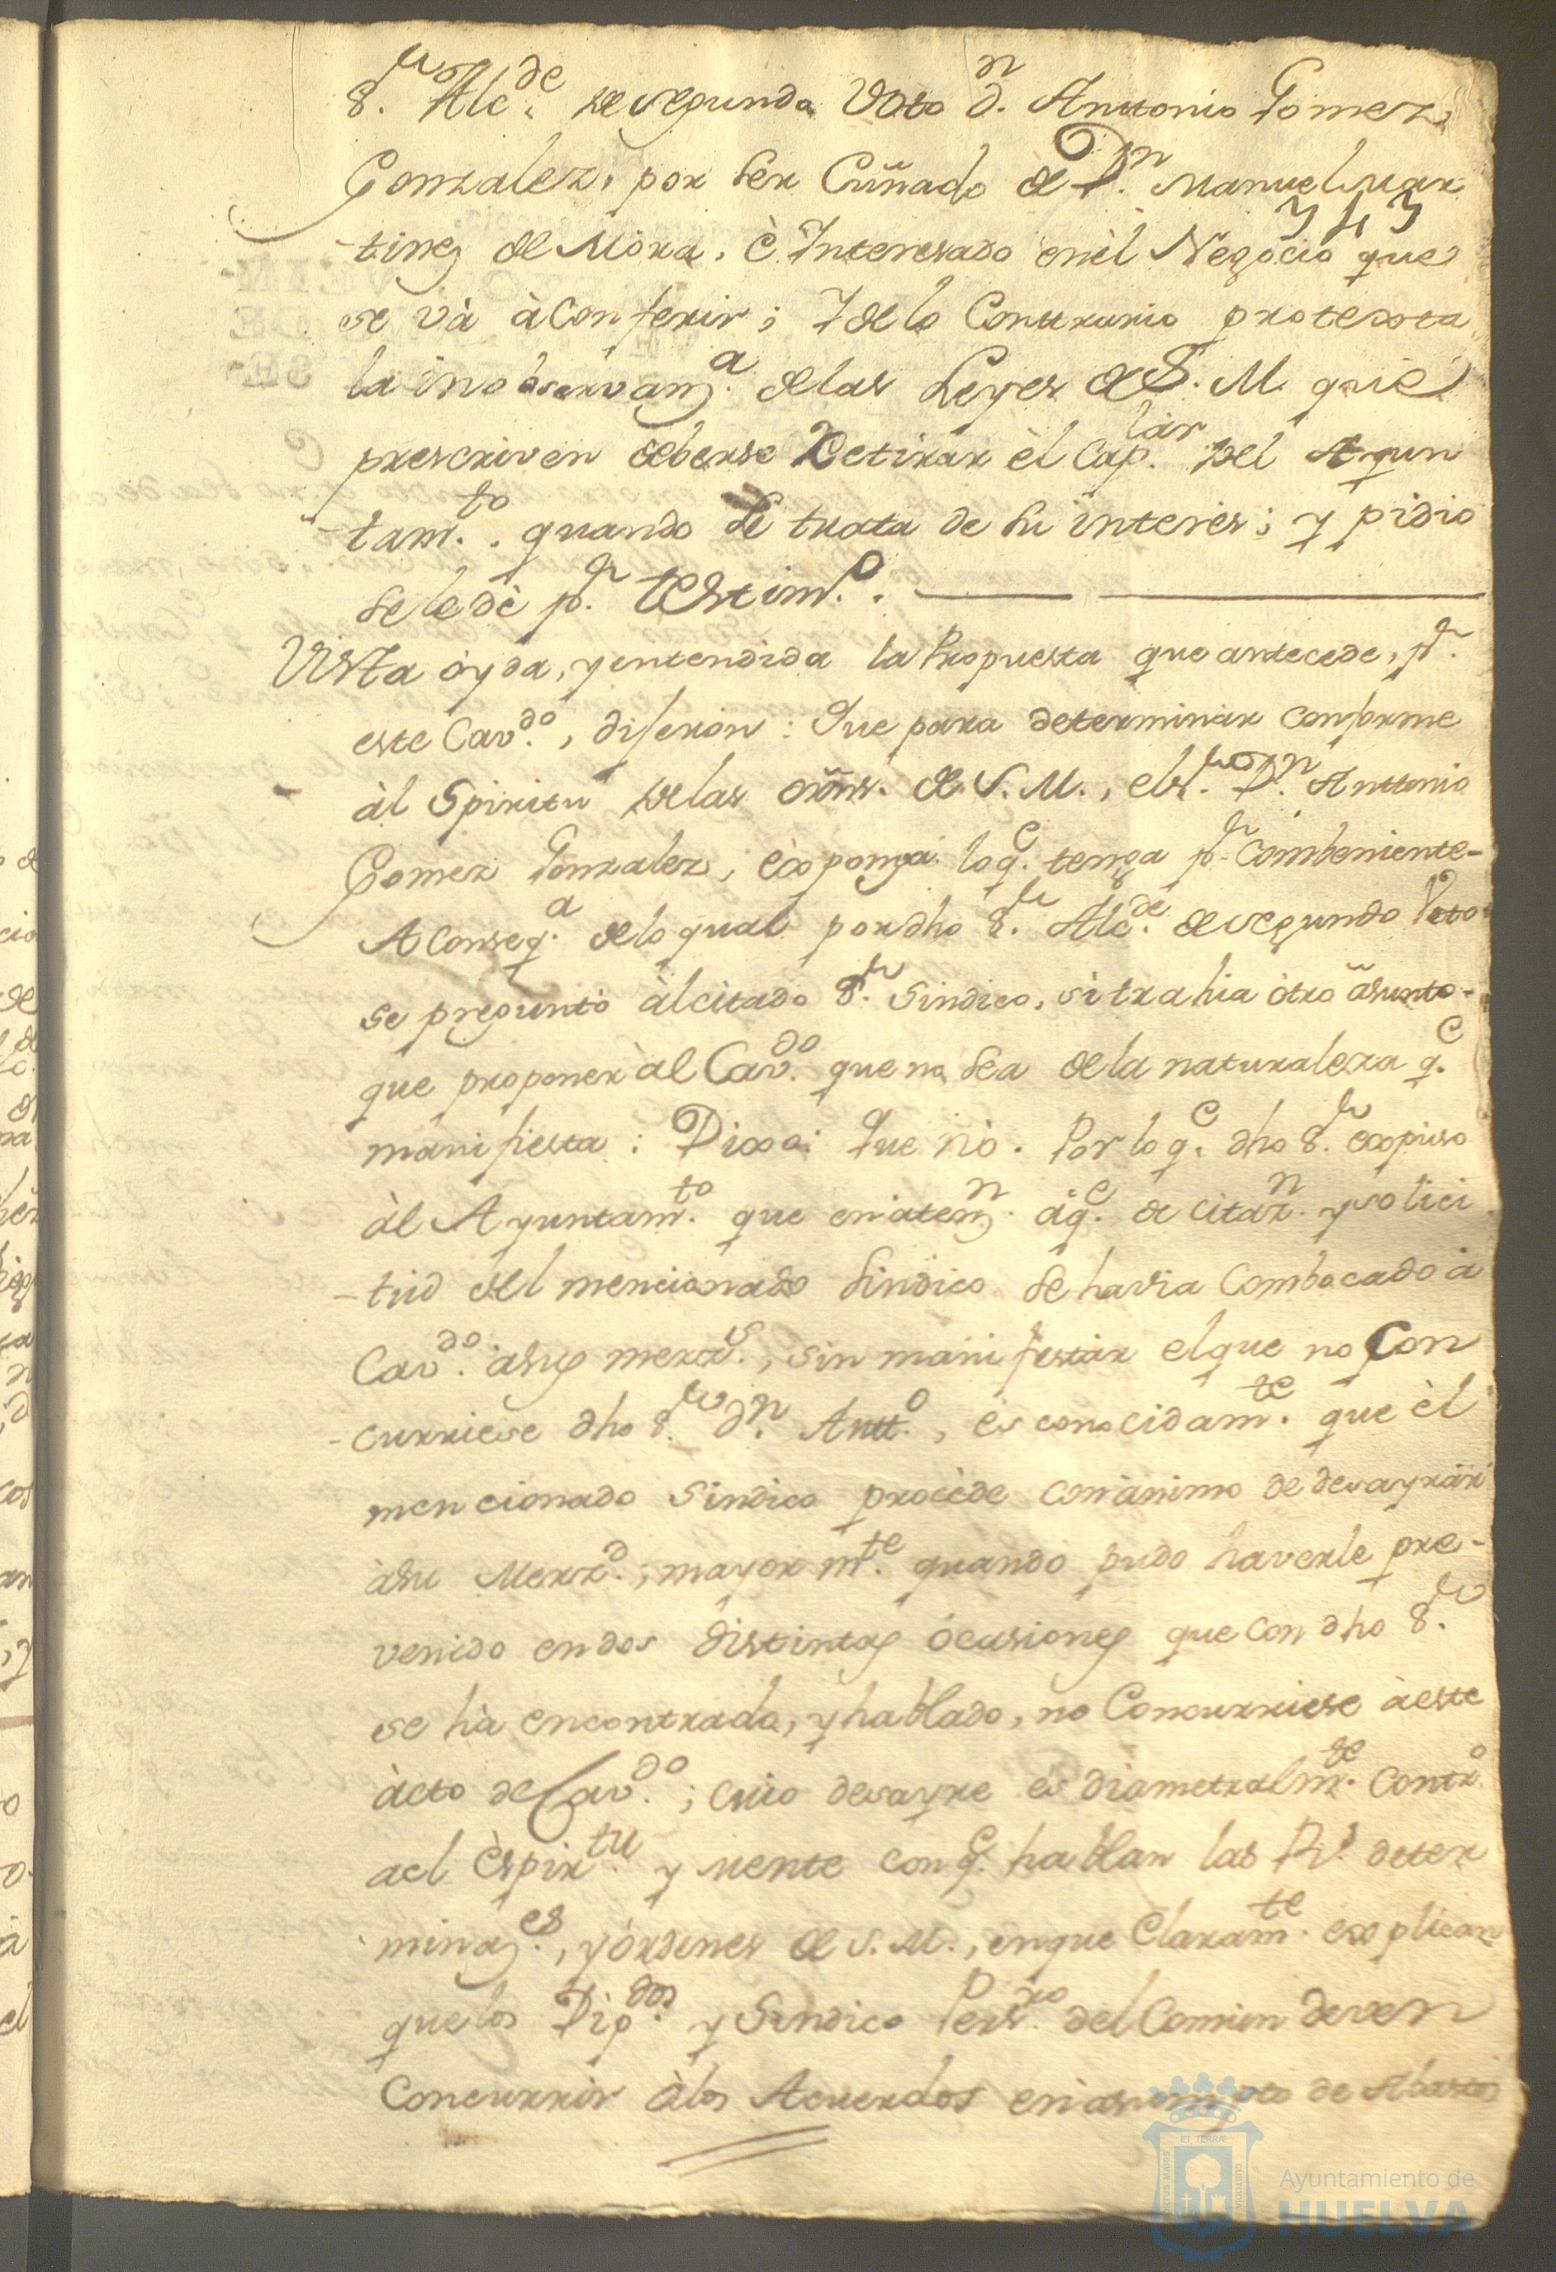 S.ʳ Alc.ᵈᵉ de segundo Voto d.ⁿ Anttonio Gomez,
Gonzalez, por ser Cuñado de D.ⁿ Manuel Mar
343
-tinez de Mora, è Interesado enèl Negocio que
se và àConferir; Y delo Conttrario protexta
la inobservanz.ᵃ delas Leyes de S. M. que
prescriven deberse Retirar èl Cap.ˡᵃʳ del Ayun
-tam.ᵗᵒ. quando se trata de su interès; y pidio
sele dè p.ʳ testim.º.
Vista òyda, y entendida la Propuesta que antecede, p.ʳ
este Cav.ᵈᵒ, dijeron: Que para determinàr conforme
àl Spiritu delas orñs. de S. M., el s.ʳ D.ⁿ Anttonio
Gomez Gonzalez, èxponga loq.ᵉ tenga p.ʳ combeniente-
A conseq.ᵃ delo qual por dho S.ʳ Alc.ᵈᵉ de segundo Voto
se preguntò àlcitado S.ʳ Sindico, sì trahia òtro àsunto-
que proponer àl Cav.ᵈᵒ que no sea dela naturaleza q.ᵉ
manifiesta: Dixo: Que nò. Por lo q.ᵉ dho S.ʳ expuso
àl Ayuntam.ᵗᵒ que en atenz.ⁿ àq.ᵉ de citaz.ⁿ y solici
-tud del mencionado Sindico se havia Combocado à
Cav.ᵈᵒ àsus merz.ˢ, sin manifestàr elque no Con
-curriese dho S.ʳ d.ⁿ Antt.º, ès conocidam.ᵗᵉ que èl
mencionado Sindico procède con ànimo de desayràr
àsu Merz.ᵈ; mayorm.ᵗᵉ quando pudo haverle pre-
venido en dos distintas òcasiones que con dho S.ʳ
se hà encontrado, y hablado, no Concurriese àeste
àcto de Cav.ᵈᵒ; cuio desayre ès diametralm.ᵗᵉ contr.º
ael Èspir.ᵗᵘ y mente con q.ᵉ hablan las R.ˢ deter
minaz.ᵉˢ, y òrdenes de S. M., en que Claram.ᵗᵉ explican
que los Dip.ᵈᵒˢ y Sindico Pers.ʳᵒ del Comun deven
Concurrir àlos Acuerdos en àsumpto de Abastos
ET TERRÆ
Ayuntamiento de
HUELVA